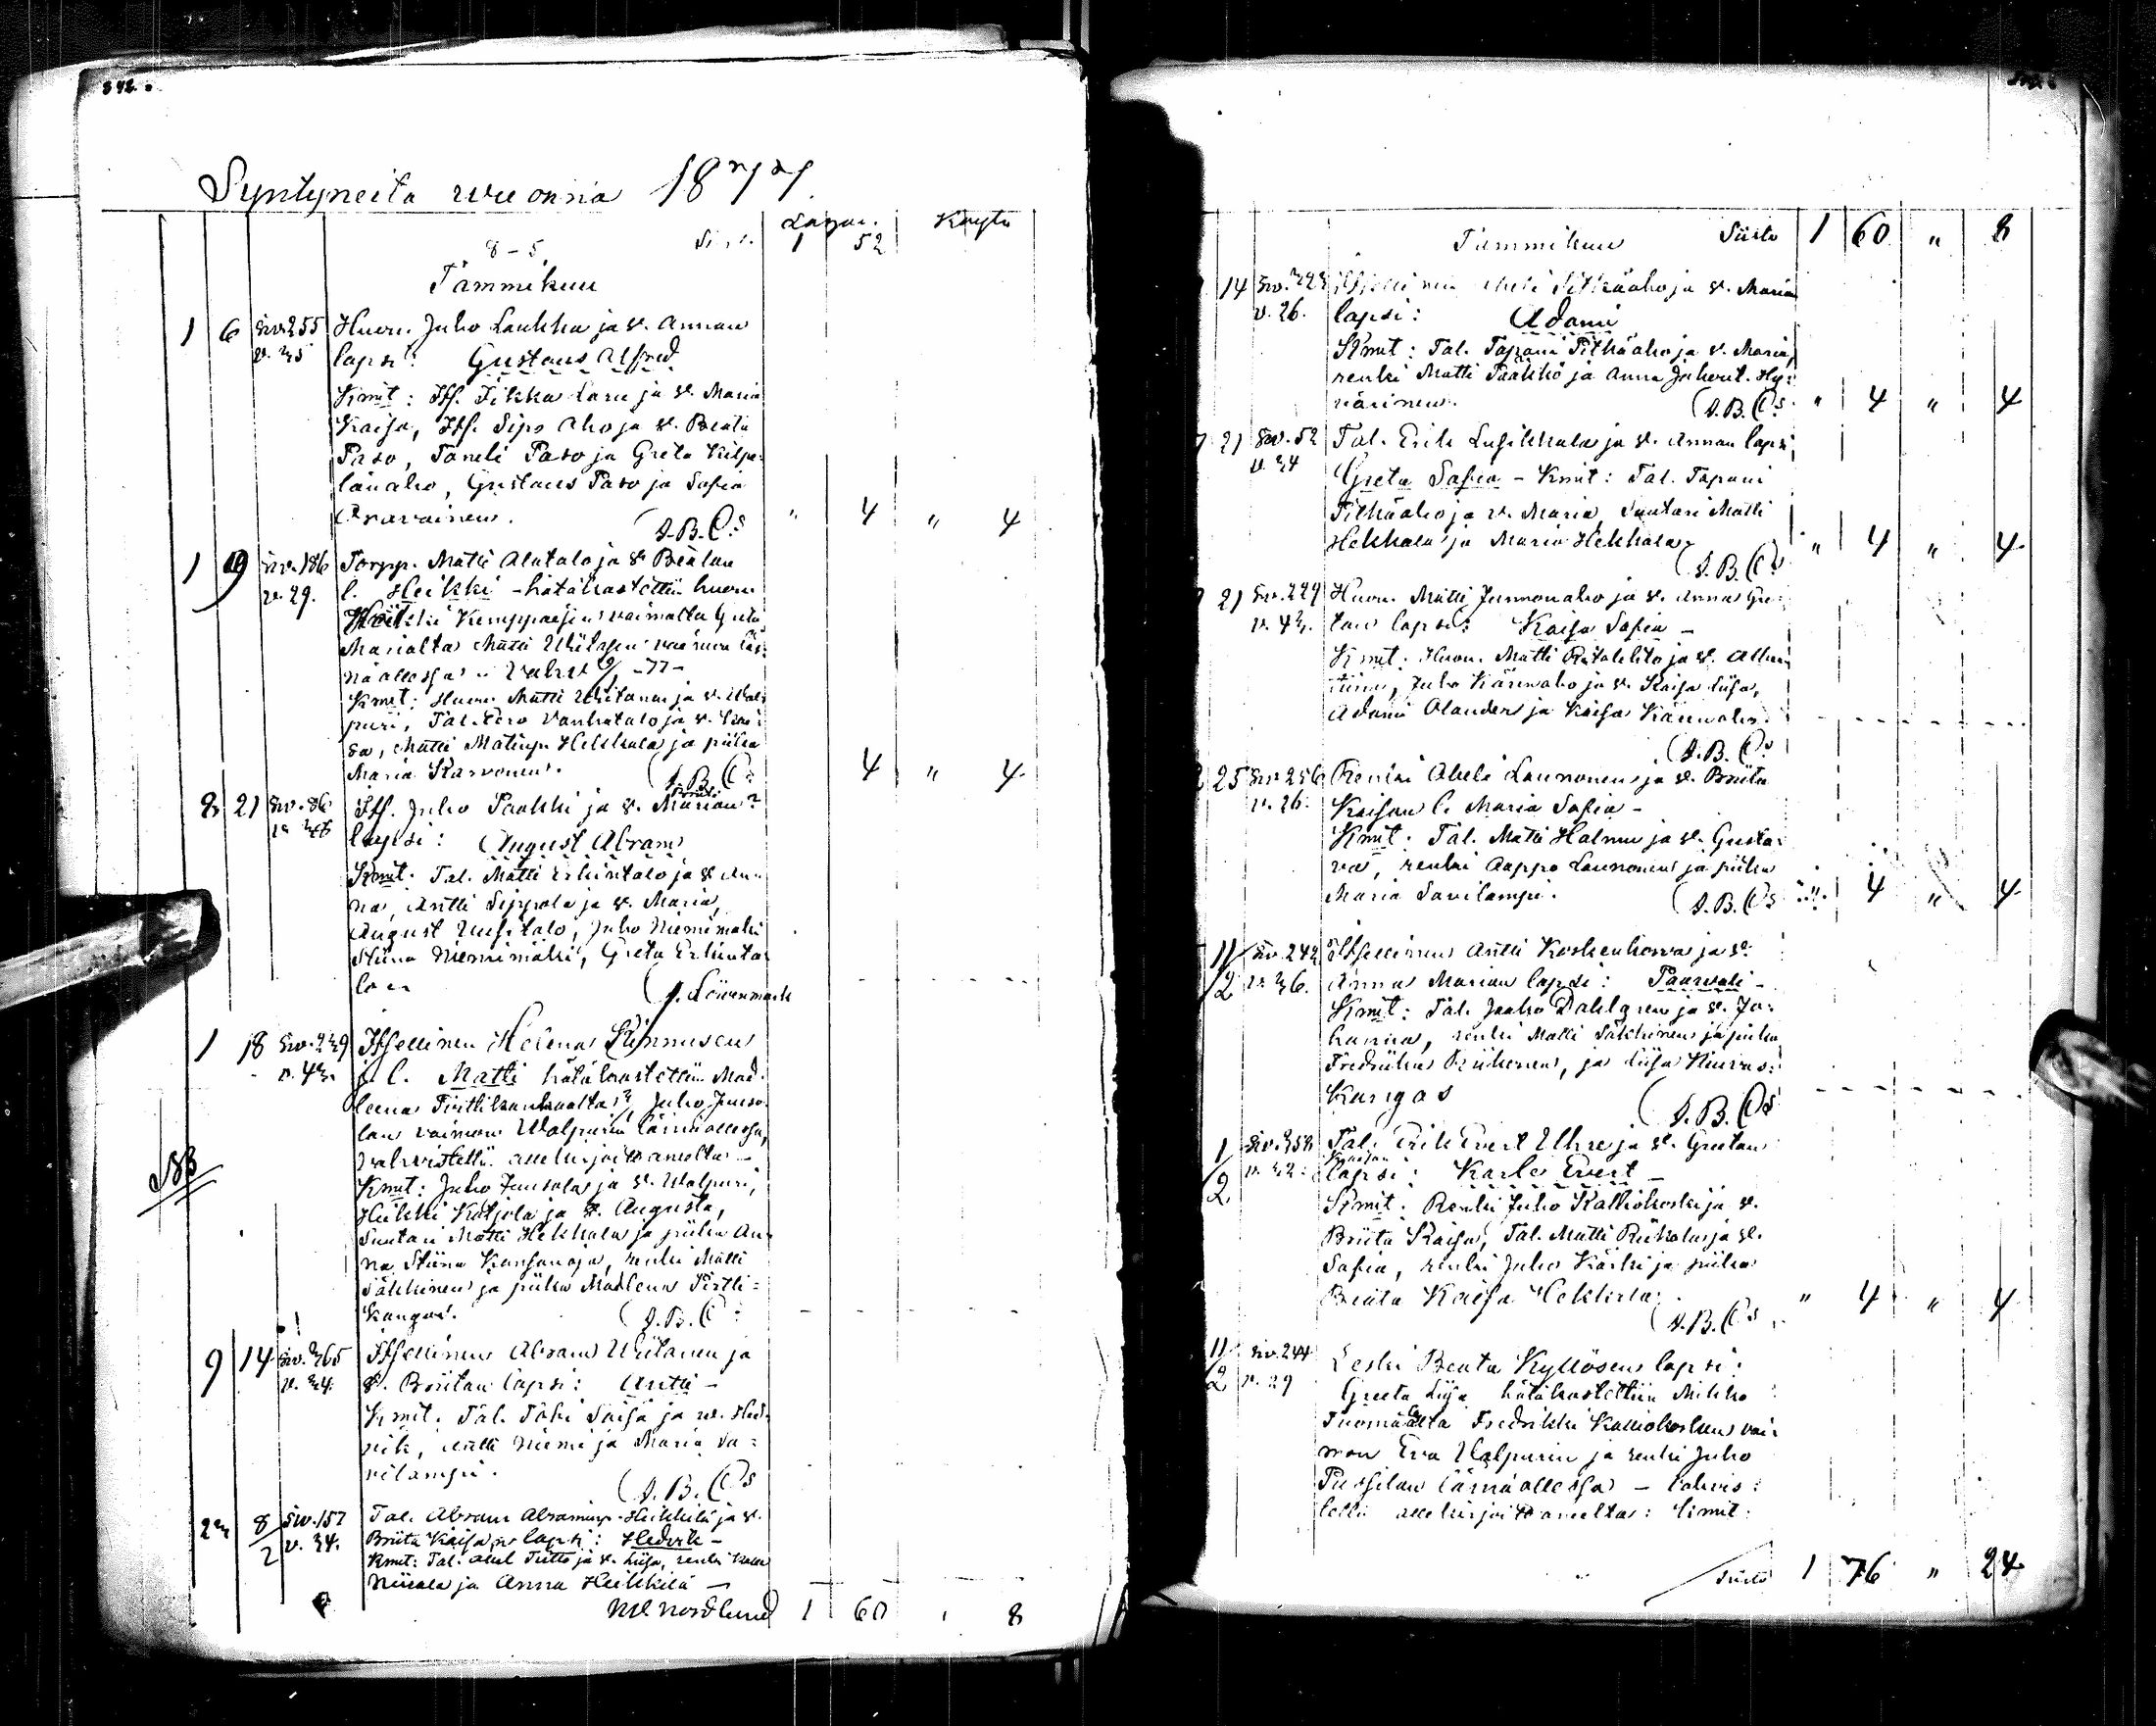 342.
Syntyneitä wuonna 1877
Kaytu
8-5. 1 52
Tammikuu
1 6 siv. 255 Huon. Juho Laukka ja v. Annan
v. 25 lapsi: Gustaus Alfred
Kmit: Its. Pikka Laru ja v. Maria
Kaisa, Its. Sipo Aho ja v. Beata
Paso, Taneli Paso ja Greta Kilpe-
länaho, Gustaus Paso ja Sofia
Oravainen. A.B.C:s " 4 " 4
1 9 siv. 186 Torpp. Matti Alatalo ja v. Beatan
v. 29. l. Heikki - hätäkastettiin huon.
Heikki Kemppaisen vaimolta Greta
Marialta Matti Wiitasen vaimon läs-
näollessa - Vahv. 9/1 -77-
Kmit: Huon. Matti Wiitanen ja v. Wal-
puri, Tal. Eero Vanhatalo ja v. Lovi-
sa, Matti Matinp. Hekkala ja piika
Maria Karvonen. A.B.C:s 4 " 4
8 21 siv. 86 Its. Juho Paakki ja v. Marian
lapsi: August Abram
Kmit. Tal. Matti Erkintalo ja v. An-
na, Antti Seppola ja v. Maria,
August Uusitalo, Juho Niemimäki
Stiina Niemimäki, Greta Erkinta-
lo - J. Löwenmark
1 18 siv. 229 Itsellinen Helena Kinnusen
v. 42. l. Matti hätäkastettiin Mad-
leena Pirttikankaalta Juho Juuso-
lan vaimon Walpurin läsnäollessa,
vahvistettu allekirjoittaneelta -
Kmit: Juho Juusola ja v. Walpuri,
Heikki Katjola ja v. Augusta,
Suutari Matti Hekkala ja piika An-
na Stiina Kansanoja, renki Matti
Säkkinen ja piika Madleena Pirtti-
kangas. A.B.C:s
9 14 siv. 265 Itsellinen Abram Wiitanen ja
v. 34. v. Briitan lapsi: Antti -
Kmit. Tal. Täki Saija ja v. Hed-
vik, Antti Niemi ja Maria Sa-
vilampi. A.B.C:s
22 8/2 siv. 157 Tal. Abram Abraminp. Heikkilä ja v.
v. 34. Briita Kaisan lapsi: Hedvik -
Kmit: Tal. Abel Tutto ja v. Liisa, renki Kalle
Niirala ja Anna Heikkilä -
Nordlund 1 60 " 8
Tammikuu Siirto 1 60 " 8
14 Pitkäaho ja v. Maria
v. 26. lapsi: Adami
Kmit: Tal. Tapani Pitkäaho ja v. Maria,
renki Matti Paakko ja Anna Juhont. Hy-
värinen. A.B.C:s " 4 " 4
21 siv. 52 Tal. Erik Lusikkala ja v. Annan lapsi,
v. 34 Greta Sofia - Kmit: Tal. Tapani
Pitkäaho ja v. Maria, Suutari Matti
Hekkala ja Maria Hekkala. A.B.C:s " 4 " 4
21 siv. 229 Huon. Matti Junnonaho ja v. Anna Gre-
v. 42. tan lapsi: Kaisa Sofia -
Kmit: Huon. Matti Ritalehto ja v. Alber-
tiina, Juho Kärenaho ja v. Kaisa Liisa,
Adami Olander ja Kaisa Kärenaho.
A.B.C:s
25 siv. 256 Renki Abeli Launonen ja v. Briita
v. 26. Kaisan l. Maria Sofia -
Kmit: Tal. Matti Halmu ja v. Gusta-
va, renki Aappo Launonen ja piika
Maria Savilampi. A.B.C:s " 4 " 4
11/2 siv. 242 Itsellinen Antti Koskenkorva ja v.
v. 36. Anna Marian lapsi: Paavali -
Kmit: Tal. Jaako Dahlgren ja v. Jo-
hanna, renki Matti Säkkinen ja piika
Fredriika Riikonen, ja Liisa Hiirus-
kangas A.B.C:s
1/2 siv. 258 Tal. Erik Evert Uhre ja v. Greetan
v. 32. lapsi: Karle Evert -
Kmit. Renki Juho Kalliokoski ja v.
Briita Kaisa, Tal. Matti Riihola ja v.
Sofia, renki Juho Käski ja piika
Beata Kaisa Hekkala. A.B.C:s " 4 " 4
11/2 siv. 244 Leski Beata Kyllösen lapsi:
v. 29 Greeta Liisa hätäkastettiin Mikko
Tuomaalta Fredrikki Kalliokosken vai-
mon Eva Walpurin ja renki Juho
Pussilan läsnäollessa - vahvis-
tettu allekirjoittaneelta: Kmit:
Siirto 1 76 " 24